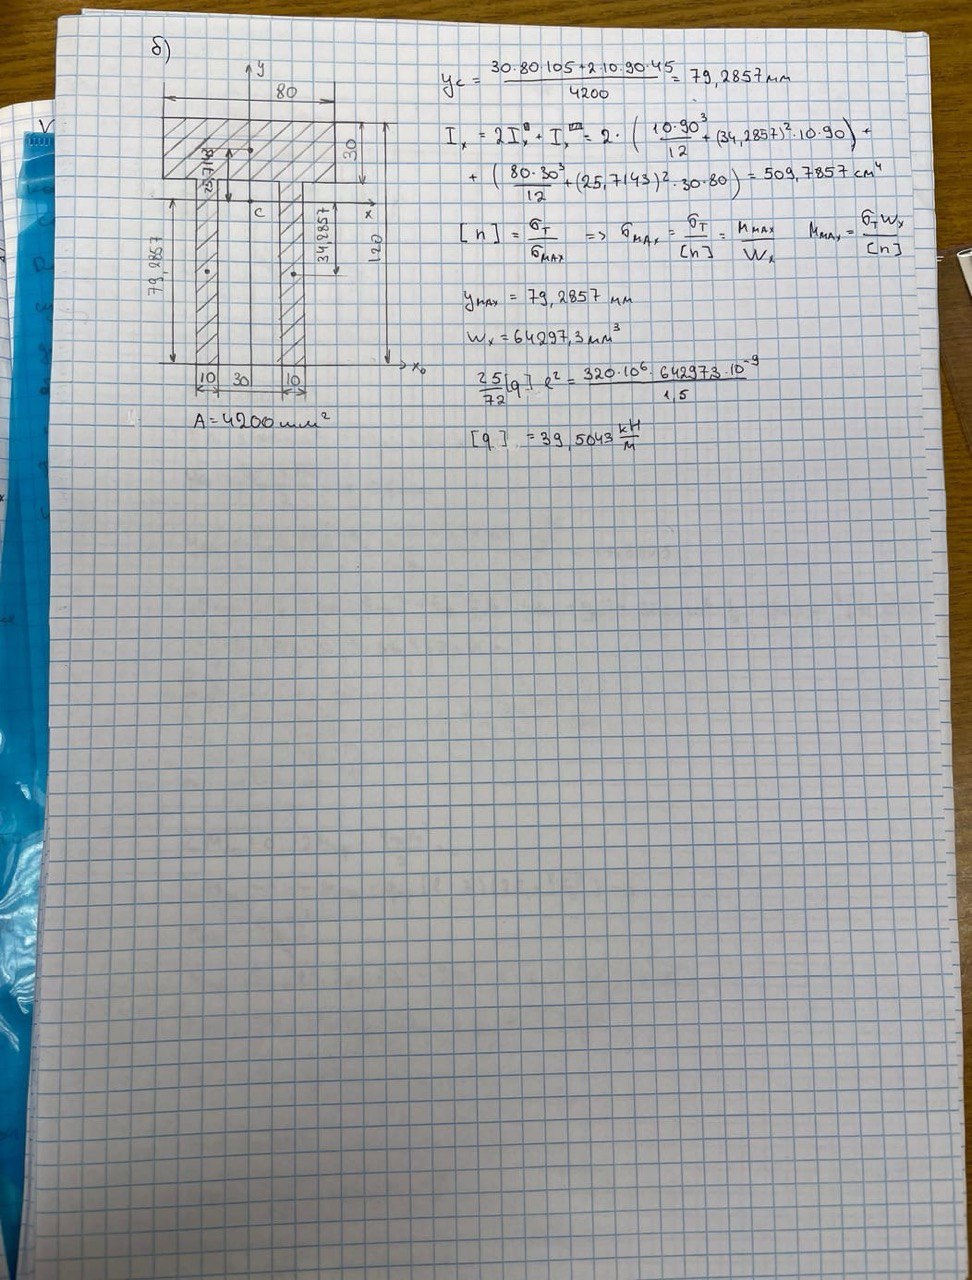 б)
y
80
30
25,7143
C
x
79,2857
34,2857
120
10 30 10
x₀
A = 4200 мм²
y_c = (30·80·105+2·10·90·45)/4200 = 79,2857 мм
I_x = 2I_x + I_x = 2·(10·90³/12 + (34,2857)²·10·90) +
+ (80·30³/12 + (25,7143)²·30·80) = 509,7857 см⁴
[n] = σ_T/σ_max => σ_max = σ_T/[n] = M_max/W_x M_max = σ_T W_x/[n]
y_max = 79,2857 мм
W_x = 64297,3 мм³
25/72 [q] ℓ² = 320·10⁶·64297,3·10⁻⁹/1,5
[q] = 39,5043 кН/м